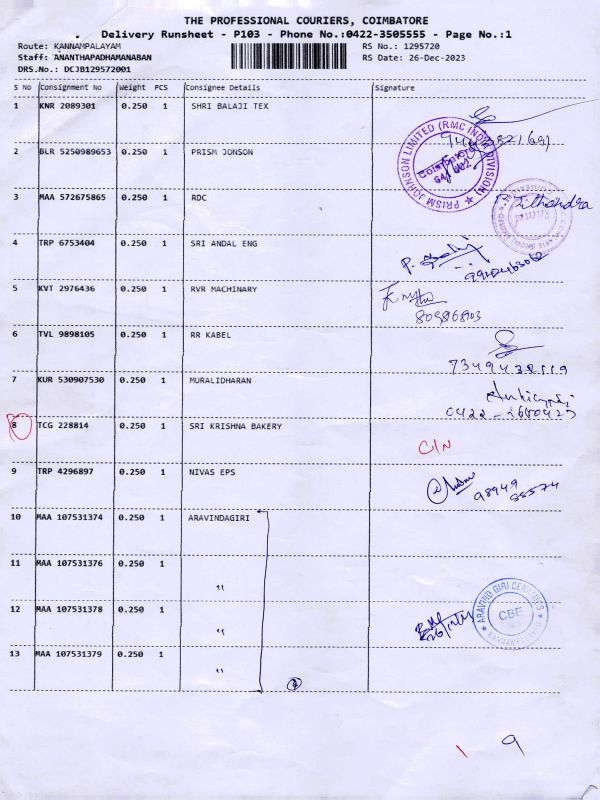 THE PROFESSIONAL COURIERS, COIMBATORE
Delivery Runsheet - P103 - Phone No.:0422-3505555 - Page No.:1
Route: KANNAMPALAYAM RS No.: 1295720
Staff: ANANTHAPADHAMANABAN RS Date: 26-Dec-2023
DRS.No.: DCJB129572001
S No Consignment No Weight PCS Consignee Details Signature
1 KNR 2089301 0.250 1 SHRI BALAJI TEX
2 BLR 5250989653 0.250 1 PRISM JONSON
PRISM JOHNSON LIMITED (RMC INDIA DIVISION)
3 MAA 572675865 0.250 1 RDC
4 TRP 6753404 0.250 1 SRI ANDAL ENG
5 KVT 2976436 0.250 1 RVR MACHINARY
6 TVL 9898105 0.250 1 RR KABEL
7 KUR 530907530 0.250 1 MURALIDHARAN
8 TCG 228814 0.250 1 SRI KRISHNA BAKERY
C/N
9 TRP 4296897 0.250 1 NIVAS EPS
98949
55574
10 MAA 107531374 0.250 1 ARAVINDAGIRI
11 MAA 107531376 0.250 1 "
12 MAA 107531378 0.250 1 "
ARAVIND GIRI CERAMICS
CBE
13 MAA 107531379 0.250 1 "
4
1 9